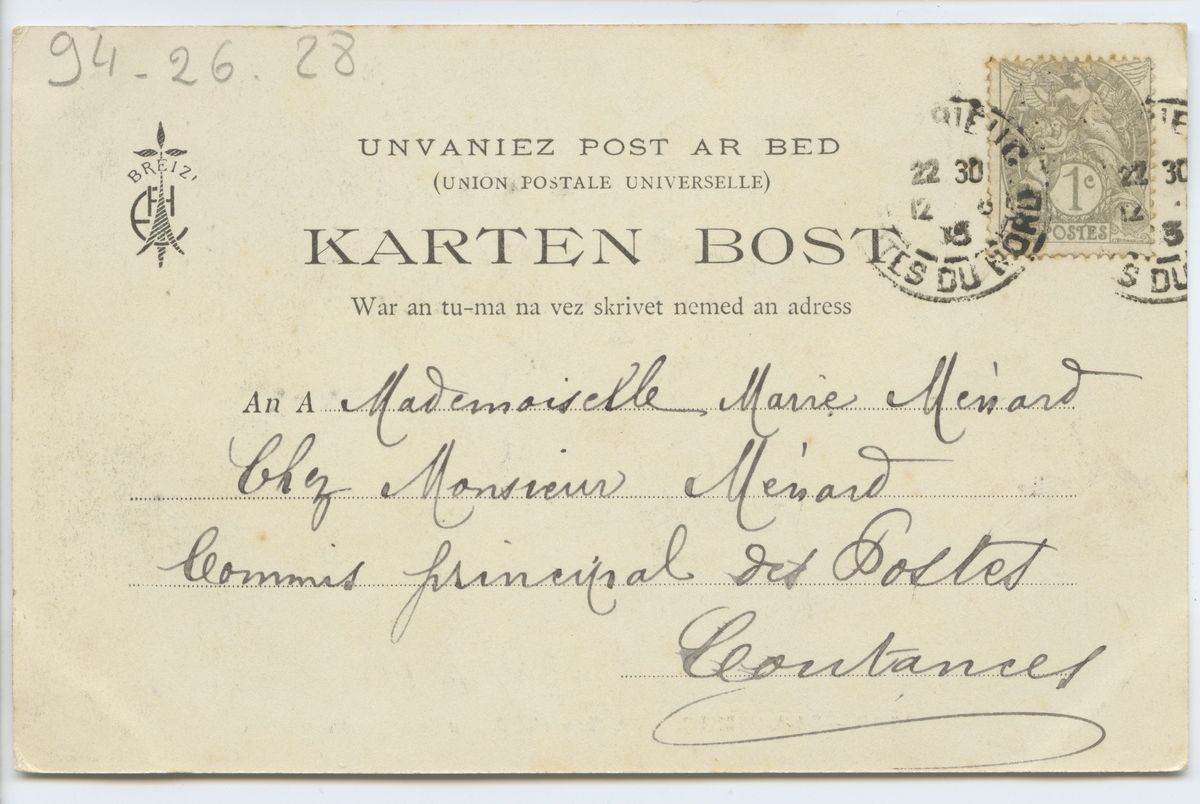 94-26.28
BREIZ
UNVANIEZ POST AR BED
(UNION POSTALE UNIVERSELLE)
KARTEN BOST
War an tu-ma na vez skrivet nemed an adress
1c
POSTES
RIEUC
22 30
12
TES DU NORD
IE
22 30
12
S DU
An A Mademoiselle Marie Ménard
Chez Monsieur Ménard
Commis principal des Postes
Coutances